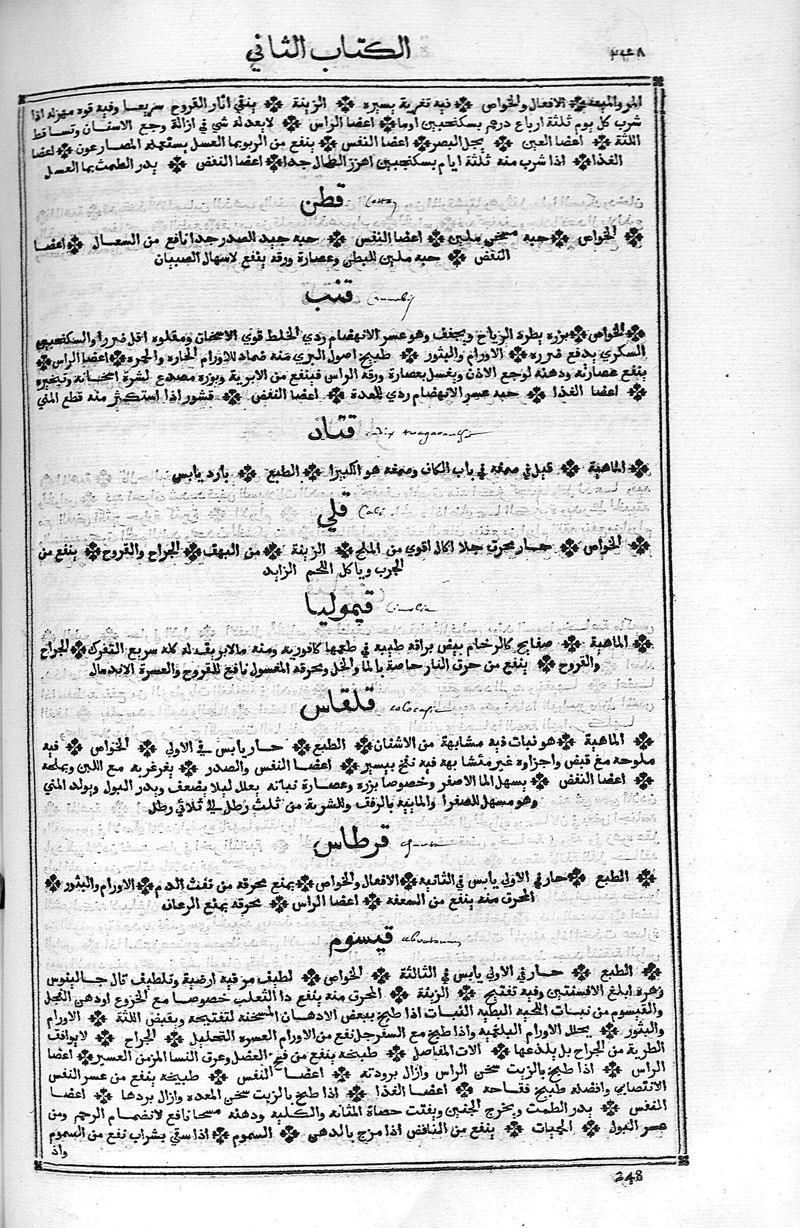 ٢٤٨
الكتاب الثاني
المر والميعة ✤ الافعال والخواص ✤ فيه تغرية يسيره ✤ الزينة ✤ ينقي اثار القروح سريعا وفيه قوه مهزله اذا
شرب كل يوم ثلثة ارباع درهم بسكنجبين اوما ✤ اعضا الراس ✤ لا يعدله شي في ازالة وجع الاسنان وتساقط
اللثة ✤ اعضا العين ✤ يجل البصر ✤ اعضا النفس ✤ ينفع من الربو بما العسل يستعمله المصارعون ✤ اعضا
الغذا ✤ اذا شرب منه ثلثة ايام بسكنجبين اهزل الطحال جدا ✤ اعضا النفض ✤ يدر الطمث بما العسل
قطن
✤ الخواص ✤ حبه مسخن ملين ✤ اعضا النفس ✤ حبه جيد للصدر جدا نافع من السعال ✤ اعضا
النفض ✤ حبه ملين للبطن وعصارة ورقه ينفع لاسهال الصبيان
قنب
✤ الخواص ✤ بزره يطرد الرياح ويجفف وهو عسر الانهضام ردي الخلط قوي الاسخان ومقلوه اقل ضررا والسكنجبين
السكري يدفع ضرره ✤ الاورام والبثور ✤ طبيخ اصول البري منه ضماد للاورام الحاره والحمره ✤ اعضا الراس ✤
ينفع عصارته ودهنه لوجع الاذن ويغسل بعصارة ورقه الراس فينفع من الابرية وبزره مصدع لشرة اسخانه وتبخيره
✤ اعضا الغذا ✤ حبه عسر الانهضام ردي للمعدة ✤ اعضا النفض ✤ قشور اذا استكثر منه قطع المني
قتاد
✤ الماهية ✤ قيل في صمغه في باب الكاف وصمغه هو الكثيرا ✤ الطبع ✤ بارد يابس
قلي
✤ الخواص ✤ حار محرق جلا اكال اقوي من الملح ✤ الزينة ✤ من البهق ✤ الجراح والقروح ✤ ينفع من
الجرب وياكل اللحم الزايد
قيموليا
✤ الماهية ✤ صفايح كالرخام بيض براقة طيبه في طعمها كافوريه ومنه مالا بريق له كله سريع التفرك ✤ الجراح
والقروح ✤ ينفع من حرق النار خاصة بالما والخل ومحرقه المغسول نافع للقروح والعسرة الاندمال
قلقاس
✤ الماهية ✤ هو نبات فيه مشابهة من الاشنان ✤ الطبع ✤ حار يابس في الاولي ✤ الخواص ✤ فيه
ملوحه مع قبض واجزاوه غير متشابهة فيه نفخ يسير ✤ اعضا النفس والصدر ✤ يغرغر به مع اللبن
✤ اعضا النفض ✤ يسهل الما الاصفر وخصوصا بزره وعصارة نباته ليلا يضعف ويدر البول ويولد المني
وهو مسهل للصفرا والمايية بالرفق وللشربة من ثلث رطل الي ثلاثي رطل
قرطاس
✤ الطبع ✤ حار في الاولي يابس في الثانية ✤ الافعال والخواص ✤ يمنع محرقه من نفث الدم ✤ الاورام والبثور ✤
المحرق منه ينفع من السعفه ✤ اعضا الراس ✤ محرقه يمنع الرعاف
قيسوم
✤ الطبع ✤ حار في الاولي يابس في الثالثة ✤ الخواص ✤ لطيف مر فيه ارضية وتلطيف قال جالينوس
وزهره ابلغ الافسنتين وفيه تفتيح ✤ الزينة ✤ المحرق منه ينفع دا الثعلب خصوصا مع الخروع او دهن الفجل
والقيسوم من نبات اللحية البطية النبات اذا طبخ ببعض الادهان المسخنه لتفتيحه ويقبض اللثة ✤ الاورام
والبثور ✤ يحلل الاورام البلغمية واذا طبخ مع السفرجل نفع من الاورام العسره التحليل ✤ الجراح ✤ لا يوافق
الطرية من الجراح بل يلذعها ✤ الات المفاصل ✤ طبيخه ينفع من العضل وعرق النسا المزمن العسير ✤ اعضا
الراس ✤ اذا طبخ بالزيت سخن الراس وازال برودته ✤ اعضا النفس ✤ طبيخه ينفع من عسر النفس
الانتصابي وافضله طبيخ فقاحه ✤ اعضا الغذا ✤ اذا طبخ بالزيت سخن المعده وازال بردها ✤ اعضا
النفض ✤ يدر الطمث ويخرج الجنين ويفتت حصاة المثانه والكليه ودهنه مسحا نافع لانضمام الرحم ومن
عسر البول ✤ الحميات ✤ ينفع من النافض اذا مزج بالدهن ✤ السموم ✤ اذا سقي بشراب نفع من السموم
واذ
248